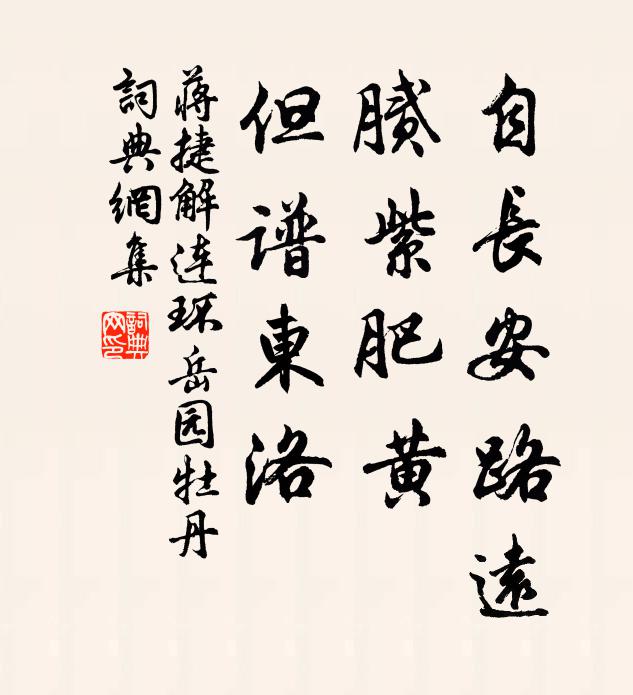 自長安路遠
膩紫肥黄
但譜東洛
蔣捷解連环岳园牡丹
詞典網集
詞典网印